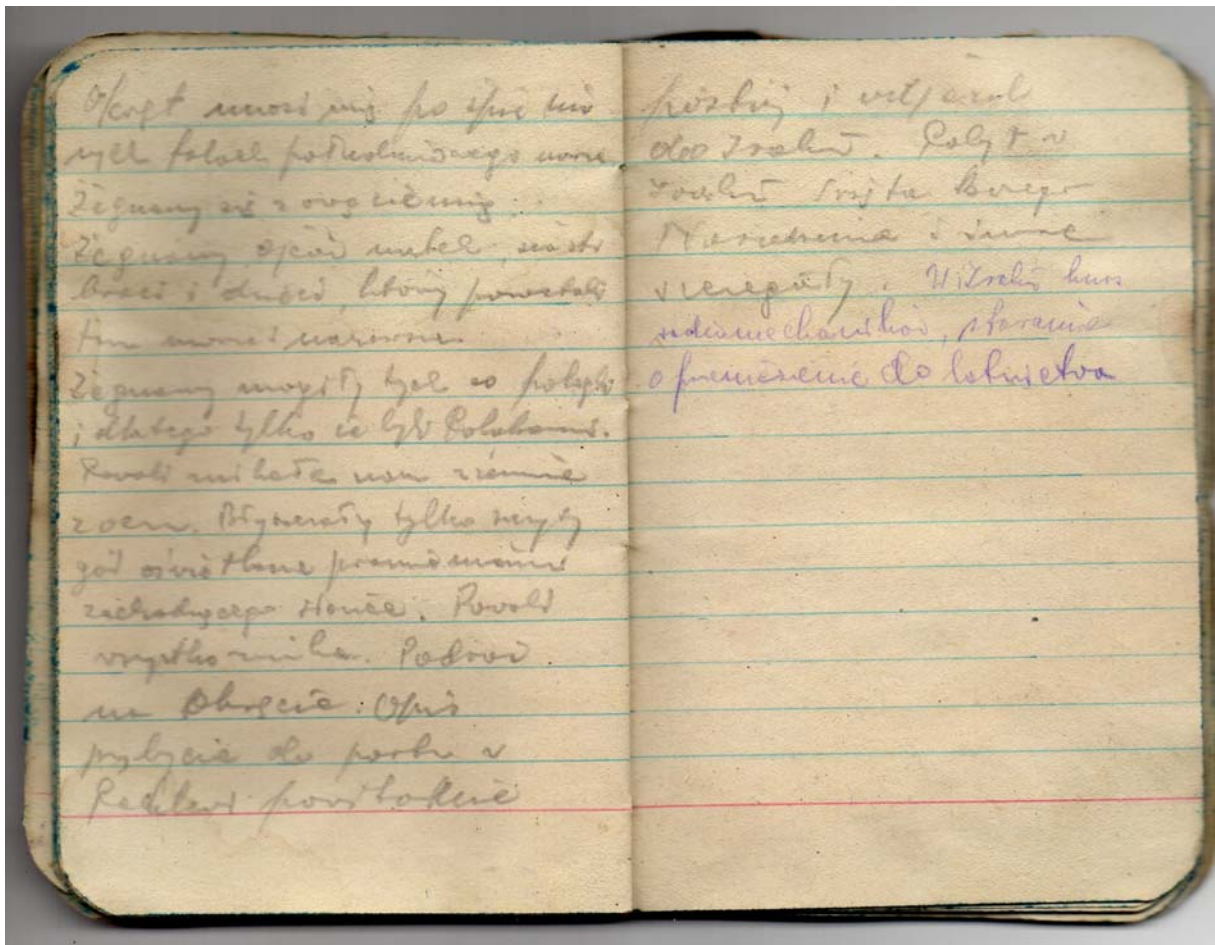 Okręt unosi się po
tych falach południowego morza
Żegnamy się z
Żegnamy ojców matek, siostr
braci i dzieci, którzy pozostali
tam
Żegnamy mogiły tych co polegli
i dlatego tylko że byli Polakami.
Powoli znikała nam ziemia
z oczu. tylko szczyty
gór oświetlone promieniami
zachodzącego słońca. Powoli
wszystko znika. Podróż
na Okręcie. Opis
przybycia do portu w
Pechlewi powitalne
postój i odjazd
do Iraku. Pobyt w
Iraku Święta Bożego
Narodzenia i inne
szczegóły. W Iraku kurs
radiomechaników, staranie
o przeniesienie do lotnictwa